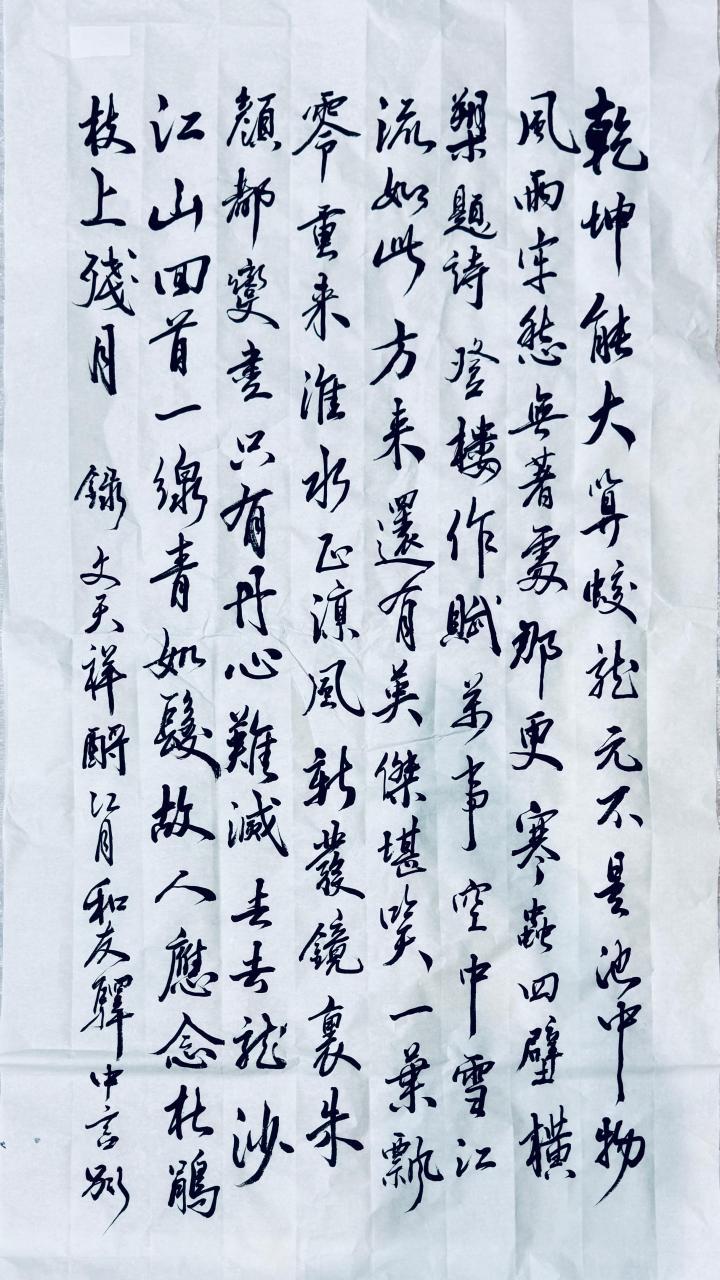 乾坤能大算蛟龍元不是池中物
風雨牢愁無著處那更寒蟲四壁橫
槊題詩登樓作賦萬事空中雪江
流如此方來還有英傑堪笑一葉飄
零重来淮水正涼風新發鏡裏朱
顏都變盡只有丹心難滅去去龍沙
江山回首一線青如髮故人應念杜鵑
枝上殘月 錄文天祥酹江月和友驛中言別